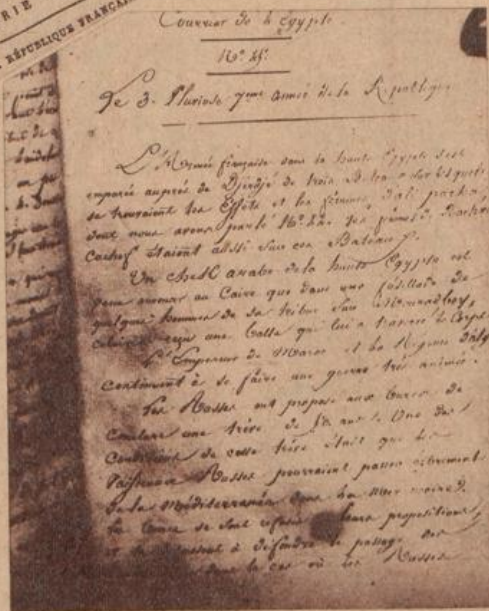 RIE
RÉPUBLIQUE FRANÇA
Courrier de l'Egypte.
Le 3. Pluviose 7eme année de la République
L'Armée française dans la haute Egypte s'est
emparée auprès de Djirdjé de trois Bateaux sur lesquels
se trouvaient les Effets et les femmes d'ali pacha
dont nous avons parlé les femmes
cachef étaient aussi sur ces Bateaux.
Un cheik arabe de la haute Egypte est
venu annoncer au Caire que dans une fusillade de
quelques hommes de sa tribu
reçu une balle qui lui a traversé le Corps
L'Empereur de Maroc et la Régence d'alg
continuent à se faire une guerre très animée.
Les Russes ont proposé aux turcs de
conclure une trève de ans. Une des
conditions de cette trève était que les
Vaisseaux Russes pourraient passer librement
de la Méditerranée dans la mer noire.
les turcs se sont refusé leurs propositions
et à défendre le passage des
dans le cas où les Russes